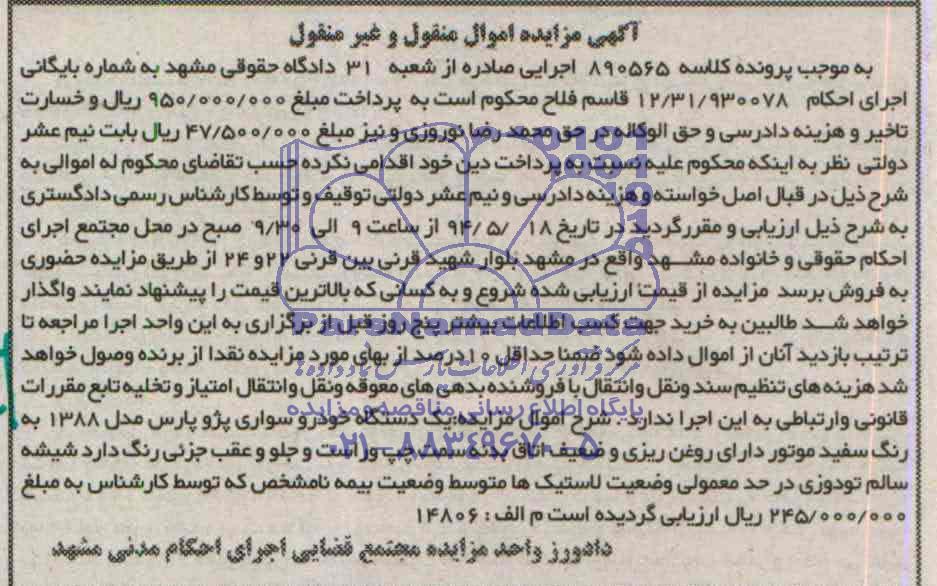 آگهی مزایده اموال منقول و غیر منقول
به موجب پرونده کلاسه ۸۹۰۵۶۵ اجرایی صادره از شعبه ۳۱ دادگاه حقوقی مشهد به شماره بایگانی
اجرای احکام ۱۲/۳۱/۹۳۰۰۷۸ قاسم فلاح محکوم است به پرداخت مبلغ ۹۵۰/۰۰۰/۰۰۰ ریال و خسارت
تاخیر و هزینه دادرسی و حق الوکاله در حق محمد رضا نوروزی و نیز مبلغ ۴۷/۵۰۰/۰۰۰ ریال بابت نیم عشر
دولتی نظر به اینکه محکوم علیه نسبت به پرداخت دین خود اقدامی نکرده حسب تقاضای محکوم له اموالی به
شرح ذیل در قبال اصل خواسته و هزینه دادرسی و نیم عشر دولتی توقیف و توسط کارشناس رسمی دادگستری
به شرح ذیل ارزیابی و مقررگردید در تاریخ ۱۸ /۹۴/۵ از ساعت ۹ الی ۹/۳۰ صبح در محل مجتمع اجرای
احکام حقوقی و خانواده مشهد واقع در مشهد بلوار شهید قرنی بین قرنی ۲۲ و ۲۴ از طریق مزایده حضوری
به فروش برسد مزایده از قیمت ارزیابی شده شروع و به کسانی که بالاترین قیمت را پیشنهاد نمایند واگذار
خواهد شد طالبین به خرید جهت کسب اطلاعات بیشتر پنج روز قبل از برگزاری به این واحد اجرا مراجعه تا
ترتیب بازدید آنان از اموال داده شود ضمنا حداقل ۱۰ درصد از بهای مورد مزایده نقدا از برنده وصول خواهد
شد هزینه های تنظیم سند ونقل وانتقال با فروشنده بدهی های معوقه ونقل وانتقال امتیاز و تخلیه تابع مقررات
قانونی وارتباطی به این اجرا ندارد. شرح اموال مزایده:یک دستگاه خودرو سواری پژو پارس مدل ۱۳۸۸ به
رنگ سفید موتور دارای روغن ریزی و ضعیف اتاق بدنه سمت چپ و راست و جلو و عقب جزئی رنگ دارد شیشه
سالم تودوزی در حد معمولی وضعیت لاستیک ها متوسط وضعیت بیمه نامشخص که توسط کارشناس به مبلغ
۲۴۵/۰۰۰/۰۰۰ ریال ارزیابی گردیده است م الف : ۱۴۸۰۶
دادورز واحد مزایده مجتمع قضایی اجرای احکام مدنی مشهد
ParsNamadData
مرکز فرآوری اطلاعات پارس نماد داده ها
پایگاه اطلاع رسانی مناقصه و مزایده
۰۲۱-۸۸۳۴۹۶۷۰-۵